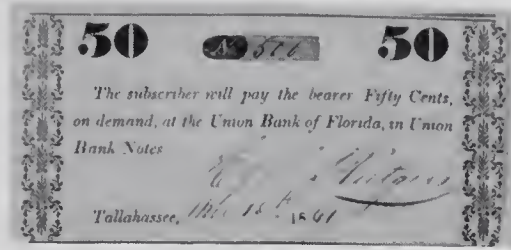 50 50
The subscriber will pay the bearer Fifty Cents,
on demand, at the Union Bank of Florida, in Union
Bank Notes
Tallahassee, 18